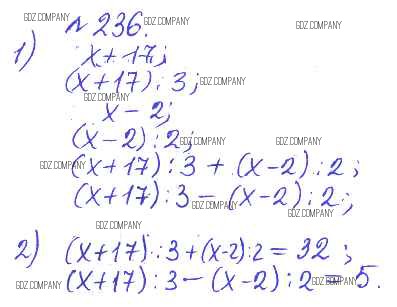 GDZ.COMPANY № 236. GDZ.COMPANY GDZ.COMPANY
1) x + 17;
(x + 17) : 3; GDZ.COMPANY
GDZ.COMPANY
x - 2;
(x - 2) : 2; GDZ.COMPANY GDZ.COMPANY
GDZ.COMPANY (x + 17) : 3 + (x - 2) : 2;
(x + 17) : 3 - (x - 2) : 2;
GDZ.COMPANY GDZ.COMPANY
GDZ.COMPANY
2) (x + 17) : 3 + (x - 2) : 2 = 32;
GDZ.COMPANY (x + 17) : 3 - (x - 2) : 2 = 5. GDZ.COMPANY